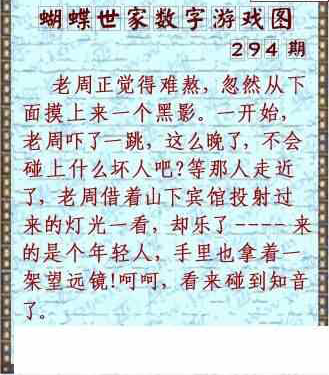 蝴蝶世家数字游戏图
294期
老周正觉得难熬，忽然从下
面摸上来一个黑影。一开始，
老周吓了一跳，这么晚了，不会
碰上什么坏人吧?等那人走近
了，老周借着山下宾馆投射过
来的灯光一看，却乐了----来
的是个年轻人，手里也拿着一
架望远镜!呵呵，看来碰到知音
了。